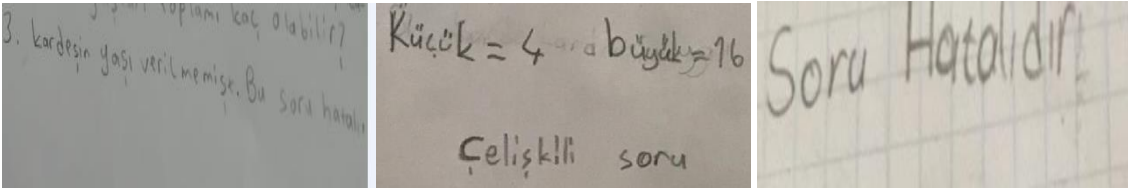 toplamı kaç olabilir?
3. kardeşin yaşı verilmemişe. Bu soru hatalı
Küçük = 4 büyük = 16
Çelişkili soru
Soru Hatalıdır.